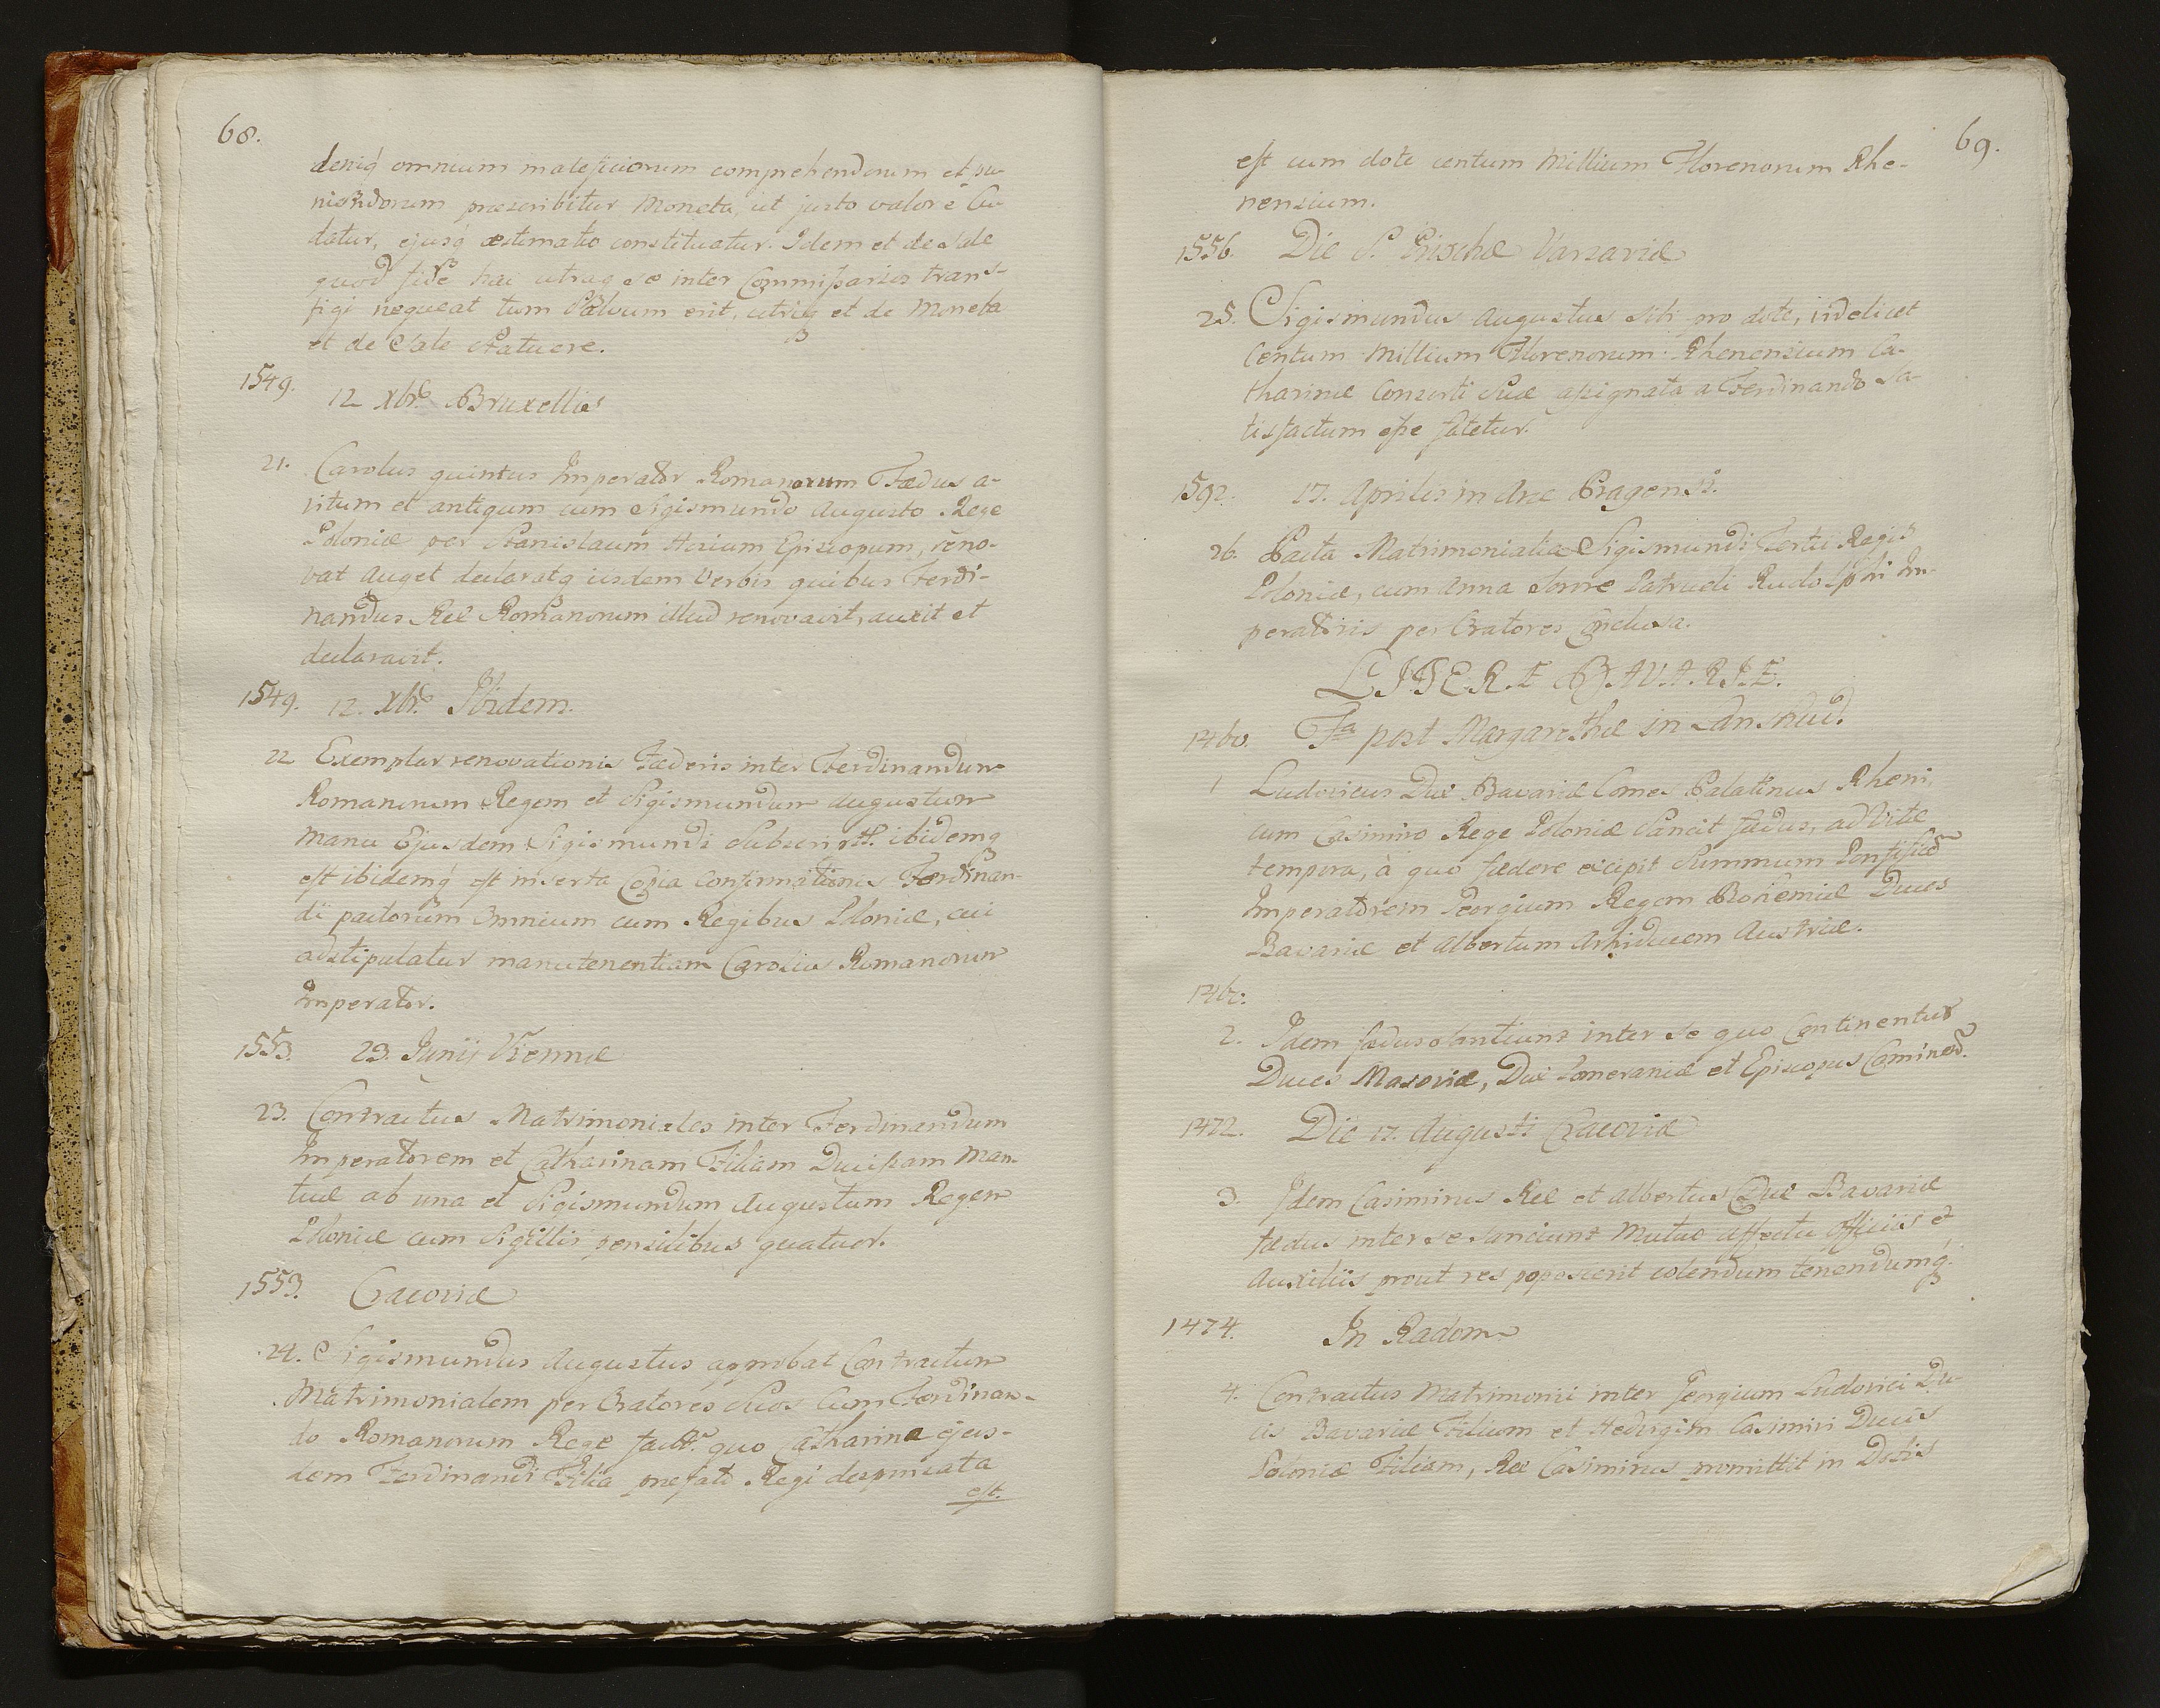 68.
deniq́ omnium maleficiorum comprehendorum et pu-
niendorum præscribitur Moneta, ut justo valore Cu-
datur, ejusq́ æstimatio constituatur. Idem et de Sale
quod si de hac utraq se inter Commissarios trans-
figi nequeat tum Salvum erit, utriq et de Moneta
et de Sale Statuere.
1549. 12 Xbr. Bruxellis
21. Carolus quintus Imperator Romanorum Fædus a-
vitum et antiquum cum Sigismundo Augusto Rege
Poloniæ per Stanislaum Hosium Episcopum, reno-
vat auget declaratq iisdem Verbis quibus Ferdi-
nandus Rex Romanorum illud renovavit, auxit et
declaravit.
1549. 12. Xbr. Ibidem.
22 Exemplar renovationis Fæderis inter Ferdinandum
Romanorum Regem et Sigismundum Augustum
Manu Ejusdem Sigismundi ibidemq
est ibidemq́ est inserta Copia Confirmationis Ferdinan-
di pactorum Omnium cum Regibus Poloniæ, cui
adstipulatur manutenentiam Carolus Romanorum
Imperator.
1553. 23. Junij Viennæ
23. Contractus Matrimoniales inter Ferdinandum
Imperatorem et Catharinam Filiam Ducissam Man-
tuæ ab una et Sigismundum Augustum Regem
Poloniæ cum Sigillis pensilibus quatuor.
1553. Cracoviæ
24. Sigismundus Augustus approbat Contractum
Matrimonialem per Oratores Suos Cum Ferdinan-
do Romanorum Rege quo Catharina ejus-
dem Ferdinandi Filia præfato Regi desponsata
est.
69.
est cum dote centum Millium Florenorum Rhe-
nensium.
1556. Die S. Prischæ Varsaviæ
25. Sigismundus Augustus sibi pro dote, videlicet
Centum Millium Florenorum Rhenensium Ca-
tharinæ Consorti Suæ assignata a Ferdinando Sa-
tisfactum esse fatetur.
1592. 17. Aprilis in Arce Pragensi.
26. Pacta Matrimonialia Sigismundi Tertii Regis
Poloniæ, cum Anna Sorore Patrueli Rudolphi Im-
peratoris per Oratores Conclusa.
LITERÆ BAVARIÆ.
1460. Fa post Margarethæ in
1 Ludovicus Dux Bavariæ Comes Palatinus Rheni,
cum Casimiro Rege Poloniæ Sancit fædus, ad Vitæ
tempora, à quo fædere excipit Summum Pontificem
Imperatorem Georgium Regem Bohemiæ Duces
Bavariæ et Albertum Arhiducem Austriæ.
2. Idem fædus Santiunt inter se quo Continentur
Duces Masoviæ, Dux Pomeraniæ et Episcopus
1472. Die 17. Augusti Cracoviæ
3. Idem Casimirus Rex et Albertus Dux Bavariæ
fædus inter se Sanciunt Mutuo affectu Officiis et
Auxiliis prout res poposcerit colendum tenendumq́.
1474. In Radom
4. Contractus Matrimonii inter Georgium Ludovici Du-
cis Bavariæ Filium et Hedvigim Casimiri Ducis
Poloniæ Filiam, Rex Casimirus promittit in Dotis